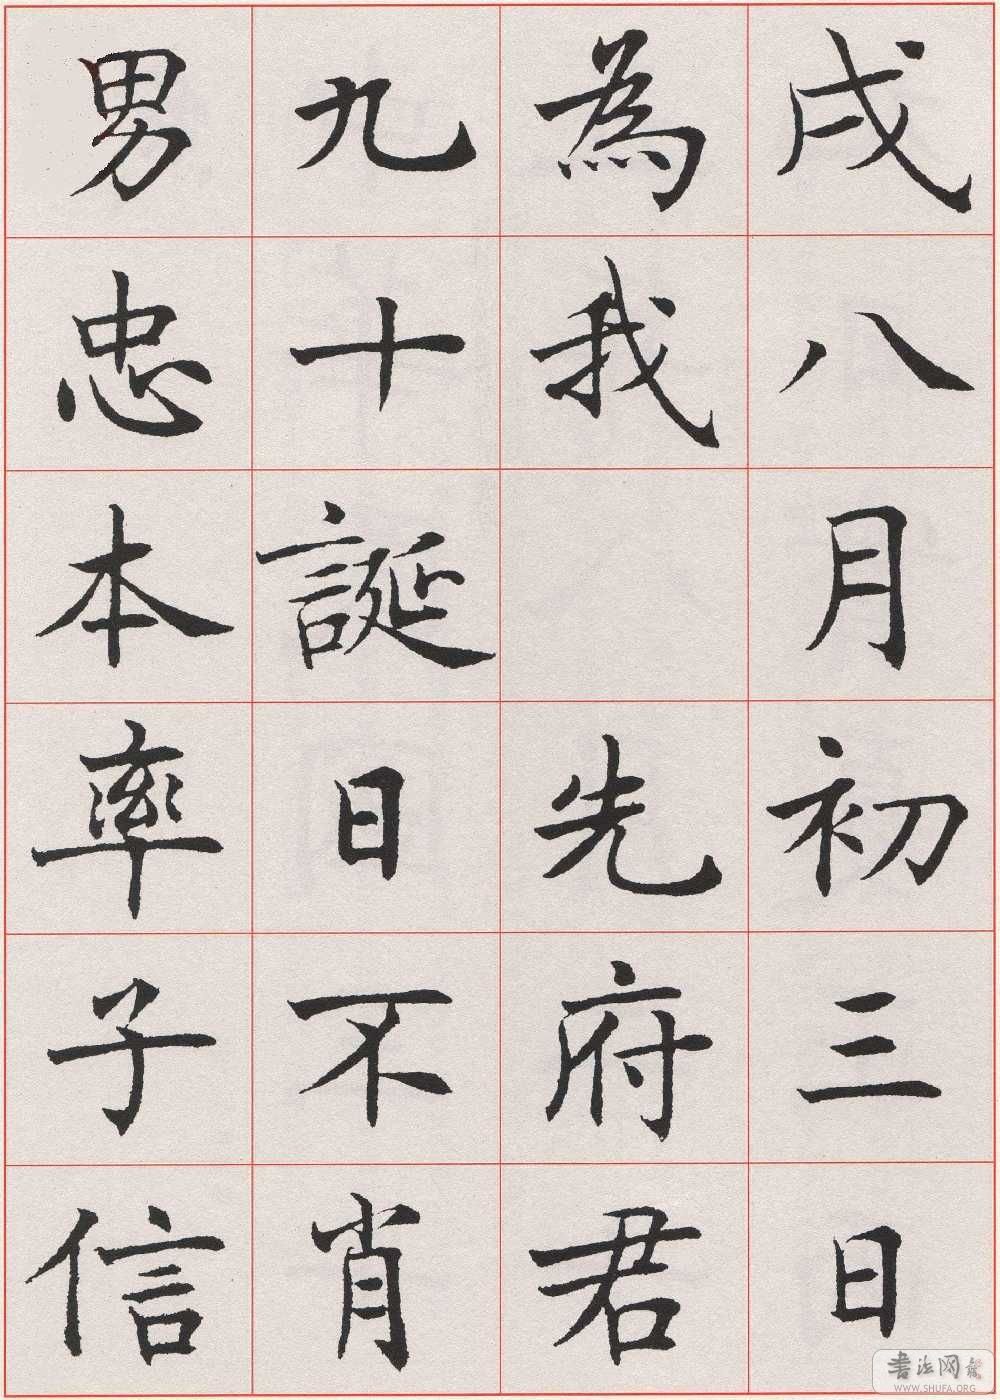 戌八月初三日
為我 先府君
九十誕日不肖
男忠本率子信
書法网
WWW.SHUFA.ORG